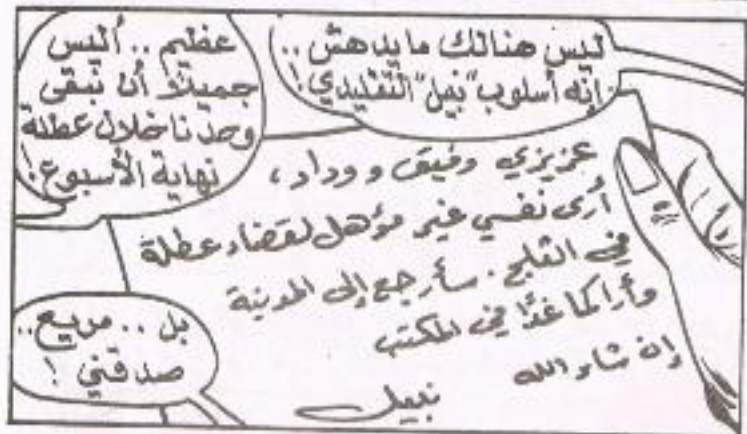 ليس هنالك ما يدهش ..
إنه أسلوب "نبيل" التقليدي !
عظيم .. أليس
جميلاً أن نبقى
وحدنا خلال عطلة
نهاية الأسبوع !
عزيزي وفيق و وداد ،
أرى نفسي غير مؤهل لقضاء عطلة
في الثلج . سأرجع إلى المدينة
وأراكما غدًا في المكتب
إن شاء الله
نبيل
بل .. مريع ..
صدقني !